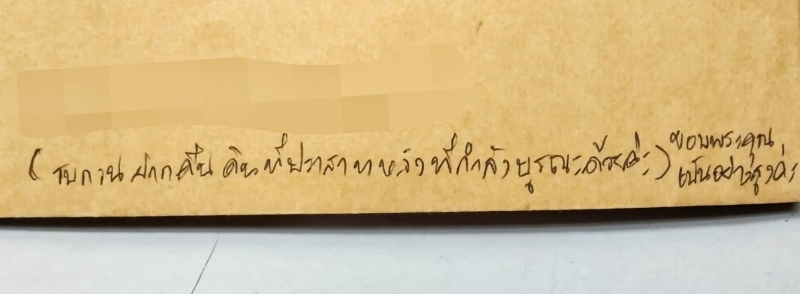 (รบกวนฝากคืนดินที่ปราสาทหลังที่กำลังบูรณะด้วยค่ะ)
ขอบพระคุณ
เป็นอย่างสูงค่ะ